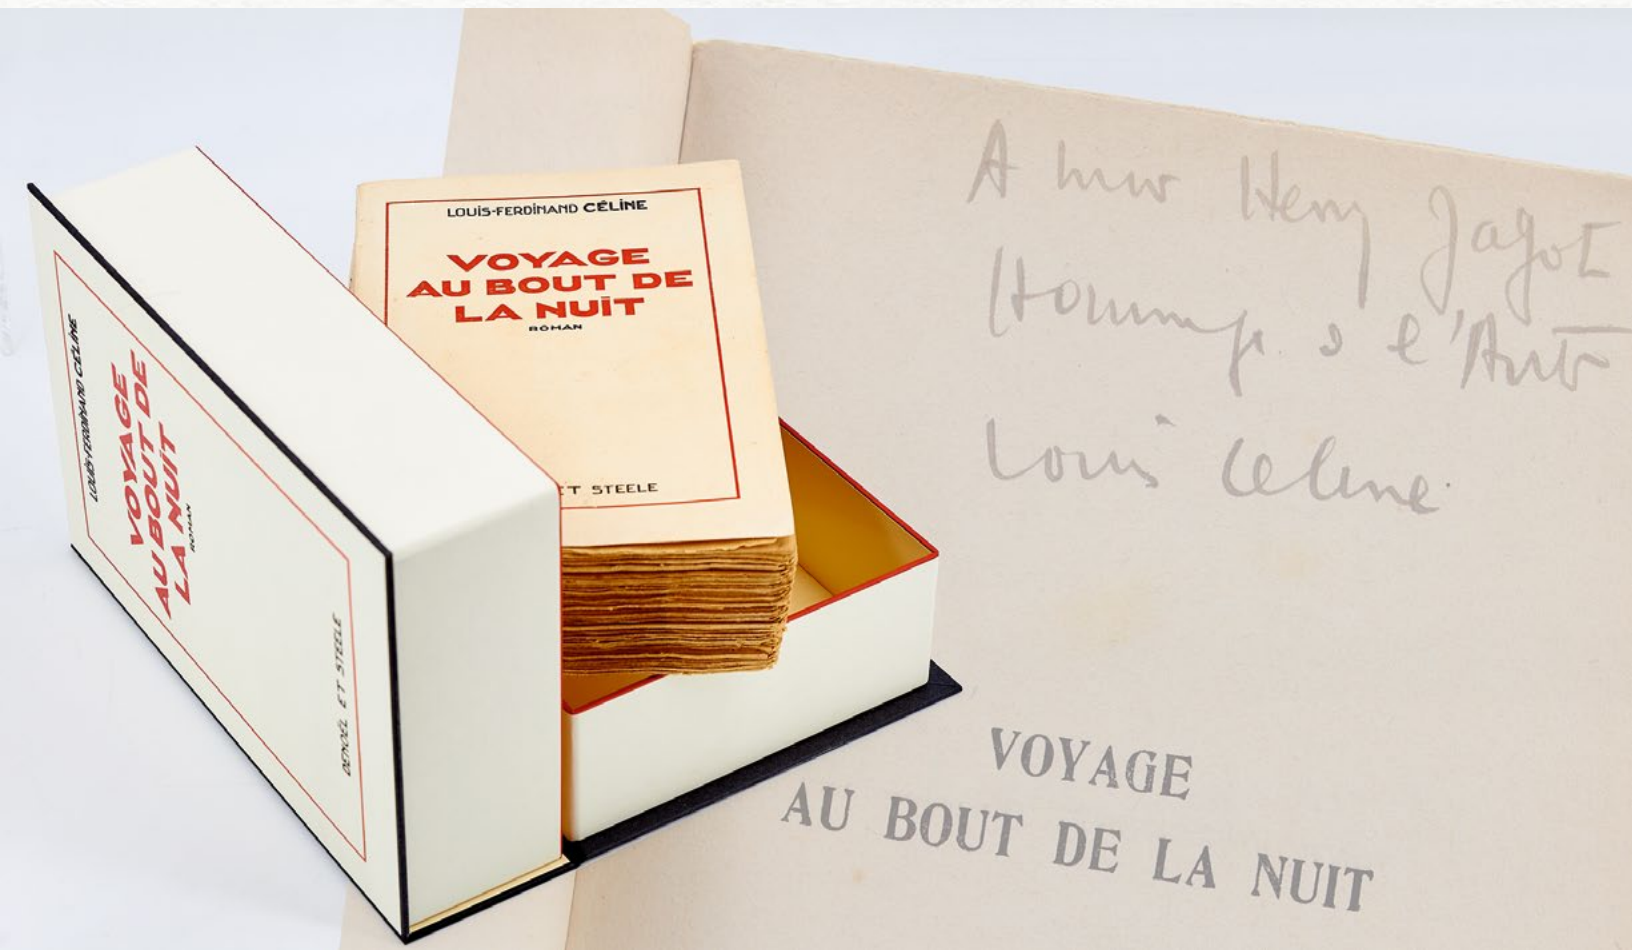 LOUIS-FERDINAND CÉLINE
VOYAGE
AU BOUT DE
LA NUIT
ROMAN
DENOËL ET STEELE
LOUIS-FERDINAND CÉLINE
VOYAGE
AU BOUT DE
LA NUIT
ROMAN
ET STEELE
A Henry Jagot
Hommage à l'
Louis Celine
VOYAGE
AU BOUT DE LA NUIT